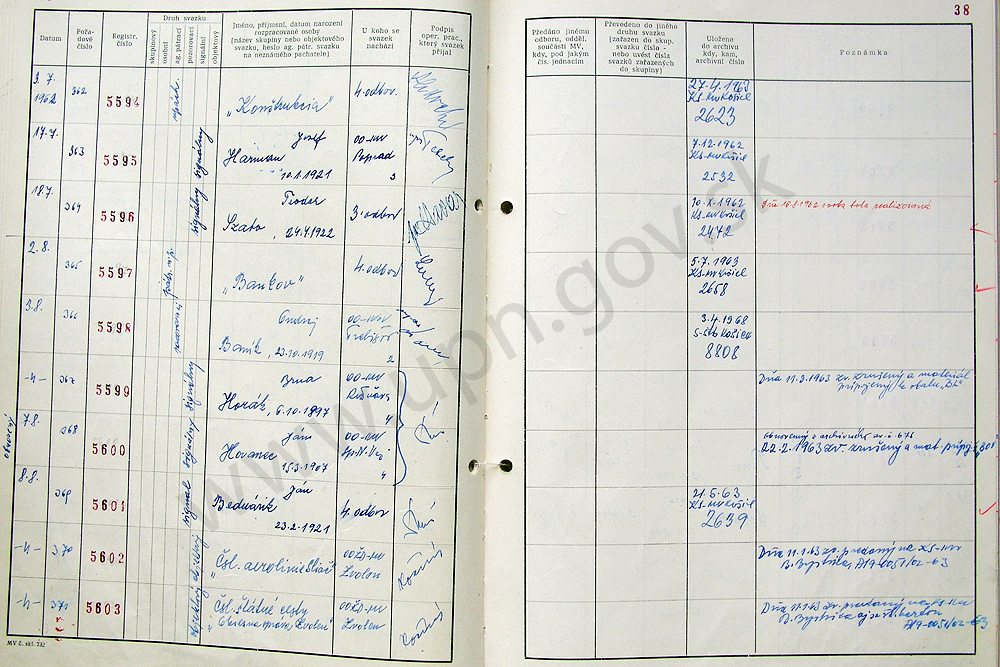 38
Datum
Pořadové číslo
Registr. číslo
Druh svazku
skupinový
osobní
ag. pátrací
pozorovací
signální
objektový
Jméno, příjmení, datum narození
rozpracované osoby
(název skupiny nebo objektového
svazku, heslo ag. pátr. svazku
na neznámého pachatele)
U koho se
svazek
nachází
Podpis
oper. prac.,
který svazek
přijal
Předáno jinému
odboru, odděl.
součásti MV,
kdy, pod jakým
čís. jednacím
Převedeno do jiného
druhu svazku
(zařazen do skup.
svazku číslo -
nebo uvést čísla
svazků zařazených
do skupiny)
Uloženo
do archivu
kdy, kam,
archivní číslo
Poznámka
3.7.
1962
362
5594
„Konštrukcia"
4. odbor
27.4.1963
KS-MV Košice
2623
17.7.
363
5595
signálny
Jozef
Harman
10.1.1921
OO-MV
Poprad
3
7.12.1962
KS-MV Košice
2532
18.7.
364
5596
signálny
Teodor
Szabo, 24.4.1922
3. odbor
10.X.1962
KS-MV Košice
2472
Dňa 16.8.1962 osoba bola realizovaná
2.8.
365
5597
„Bankov"
4. odbor
5.7.1963
KS-MV Košice
2658
3.8.
366
5598
pozorovací
Ondrej
Baník, 23.10.1919
OO-MV
Trebišov
2
3.4.1968
S-StB Košice
8808
-4-
367
5599
signálny
Horák, 6.10.1897
OO-MV
4
Dňa 11.3.1963 zv. zrušený a materiál
pripojený k obalu „BL"
obnovený
7.8.
368
5600
signálny
Ján
Hovanec
15.3.1907
OO-MV
4
22.2.1963 zv. zrušený a mat. pripoj.
8.8.
369
5601
signál
Ján
Bednárik
23.2.1921
4. odbor
21.5.63
KS-MV Košice
2639
-4-
370
5602
objektový
Čsl. aerolinie Sliač
OOŽD-MV
Zvolen
Dňa 11.1.63 zv. predaný na KS-MV
B. Bystrica, A19-0051/02-63
-4-
371
5603
objektový
Čsl. štátné cesty
OOŽD-MV
Zvolen
Dňa 11.1.63 zv. predaný na KS-MV
B. Bystrica
A19-0051/02-63
MV č. skl. 732
www.upn.gov.sk